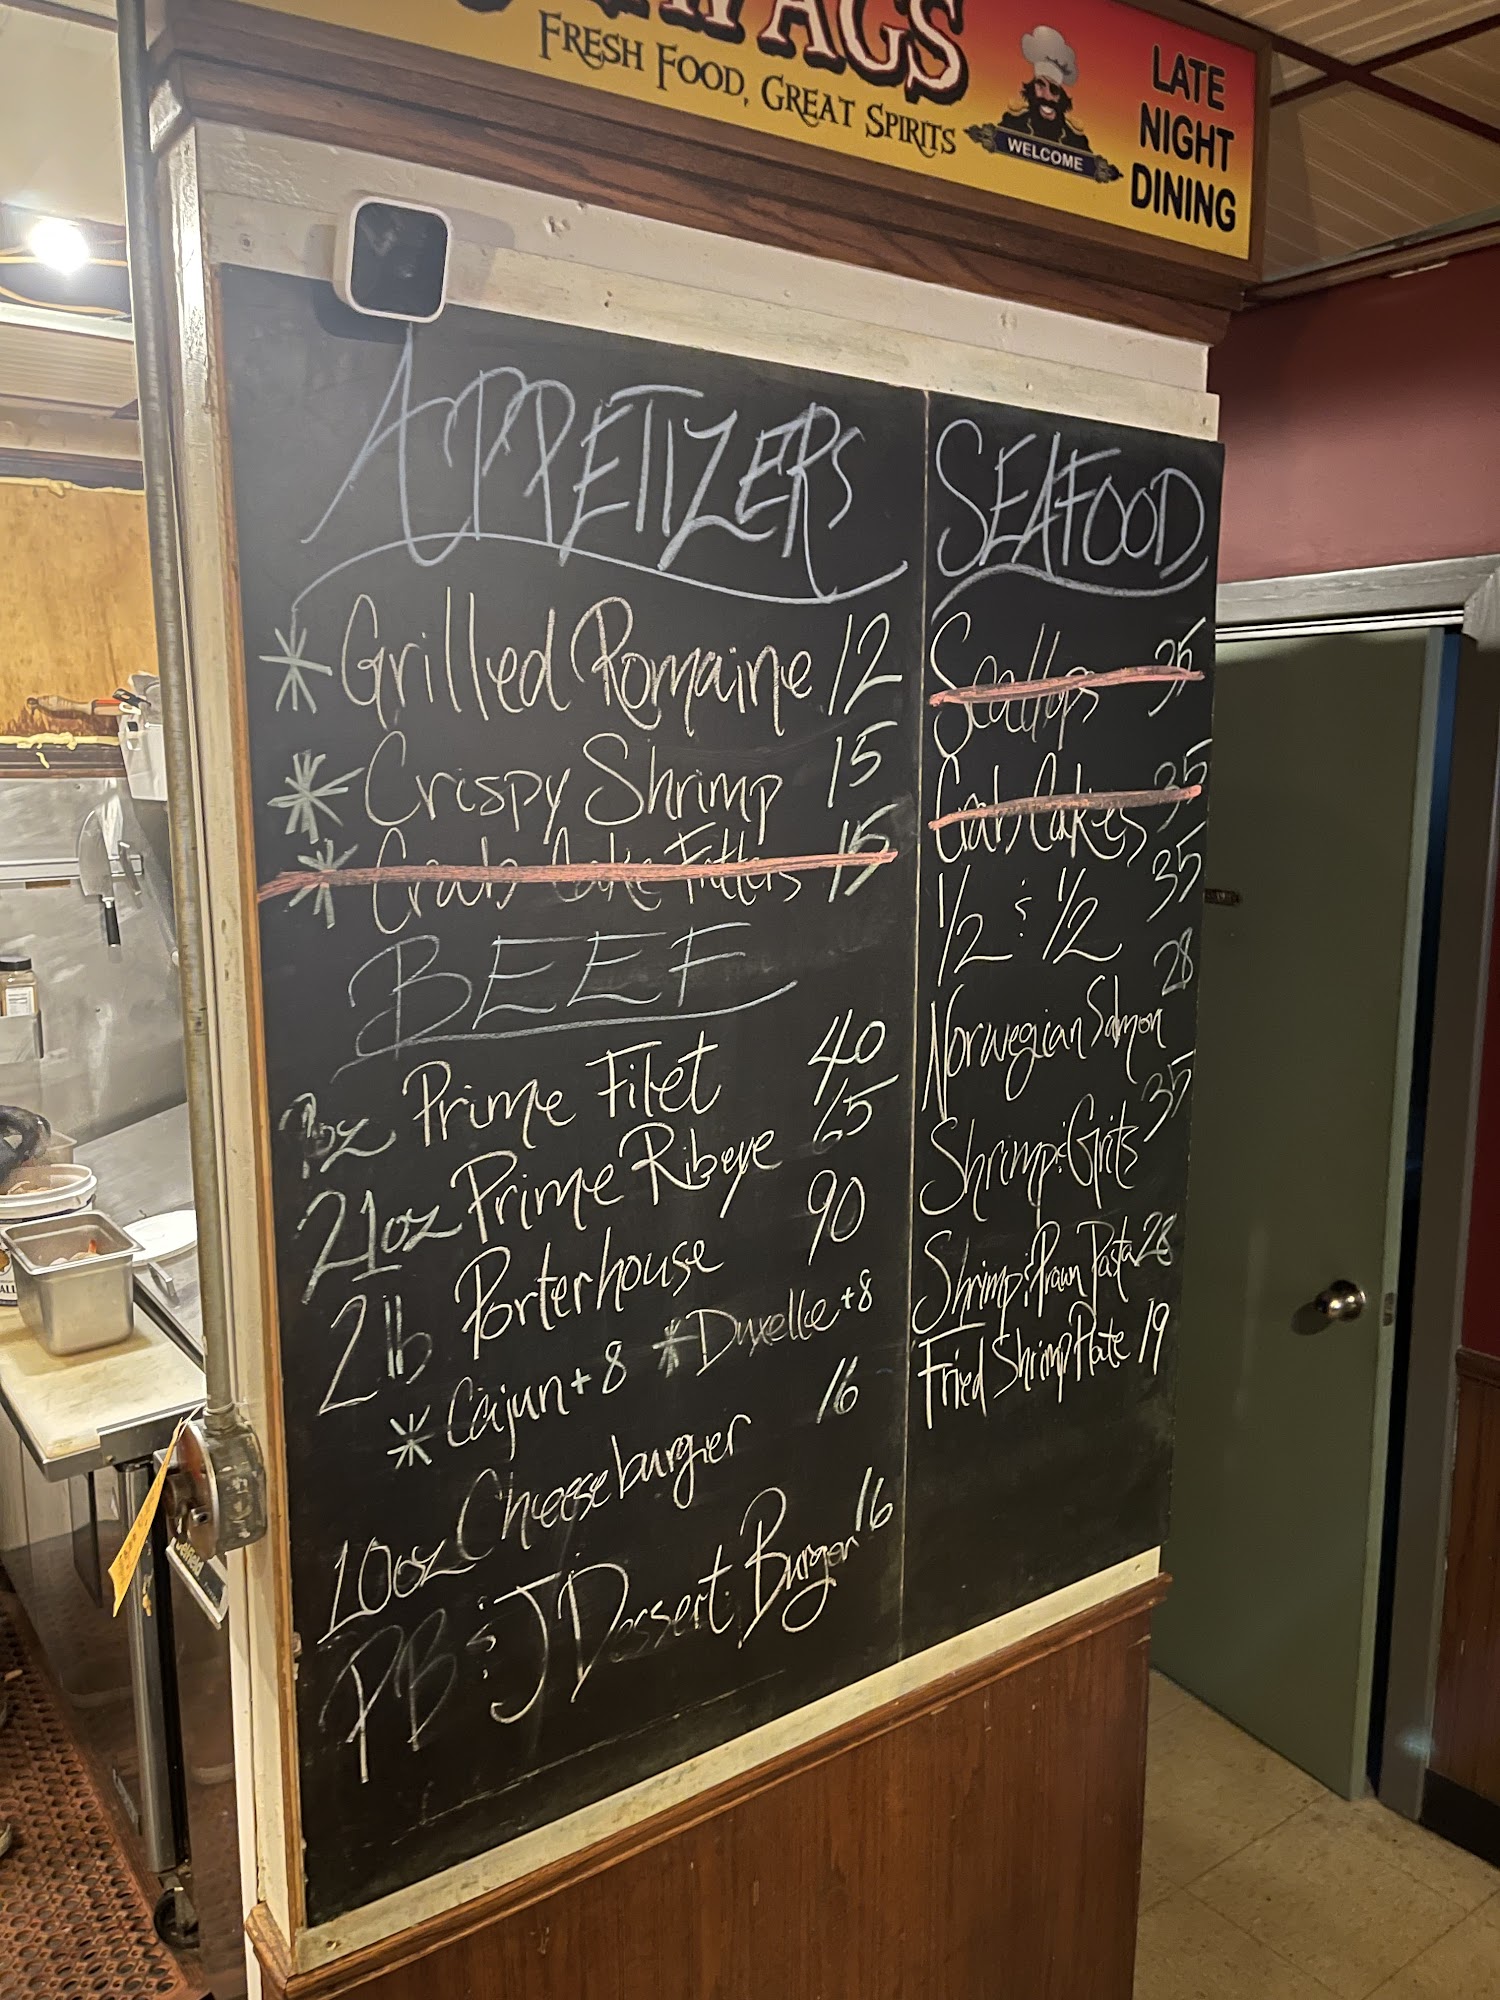 FRESH FOOD, GREAT SPIRITS
WELCOME
LATE
NIGHT
DINING
APPETIZERS
* Grilled Romaine 12
* Crispy Shrimp 15
* Crab Cake Fritters 15
BEEF
oz Prime Filet 40
21oz Prime Ribeye 65
2 lb Porterhouse 90
* Cajun +8 * Duxelle +8
10oz Cheeseburger 16
PB & J Dessert Burger 16
SEAFOOD
Scallops 35
Crab Cakes 35
1/2 & 1/2 35
Norwegian Salmon 28
Shrimp & Grits 35
Shrimp & Prawn Pasta 28
Fried Shrimp Plate 19